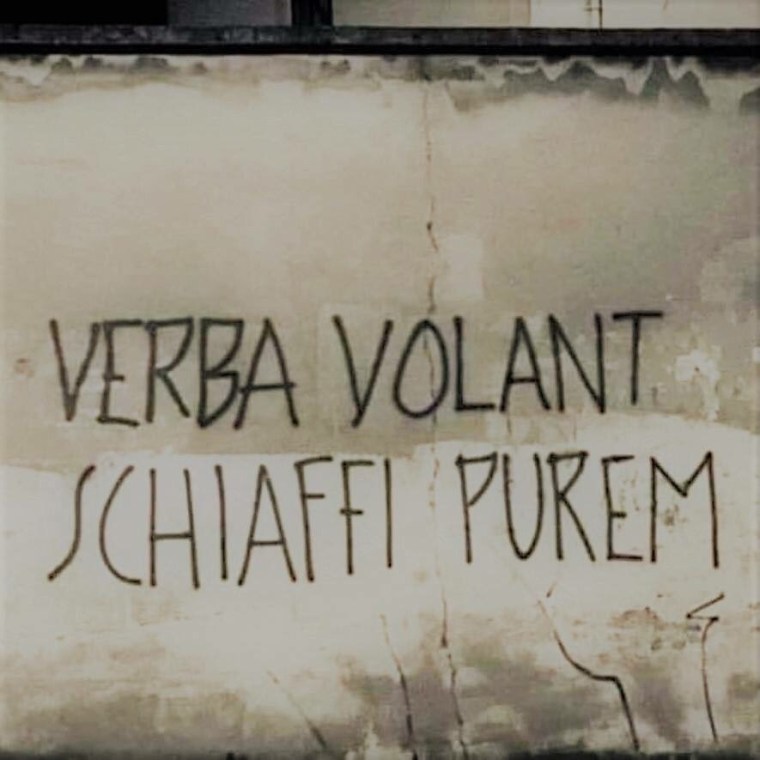 VERBA VOLANT
SCHIAFFI PUREM